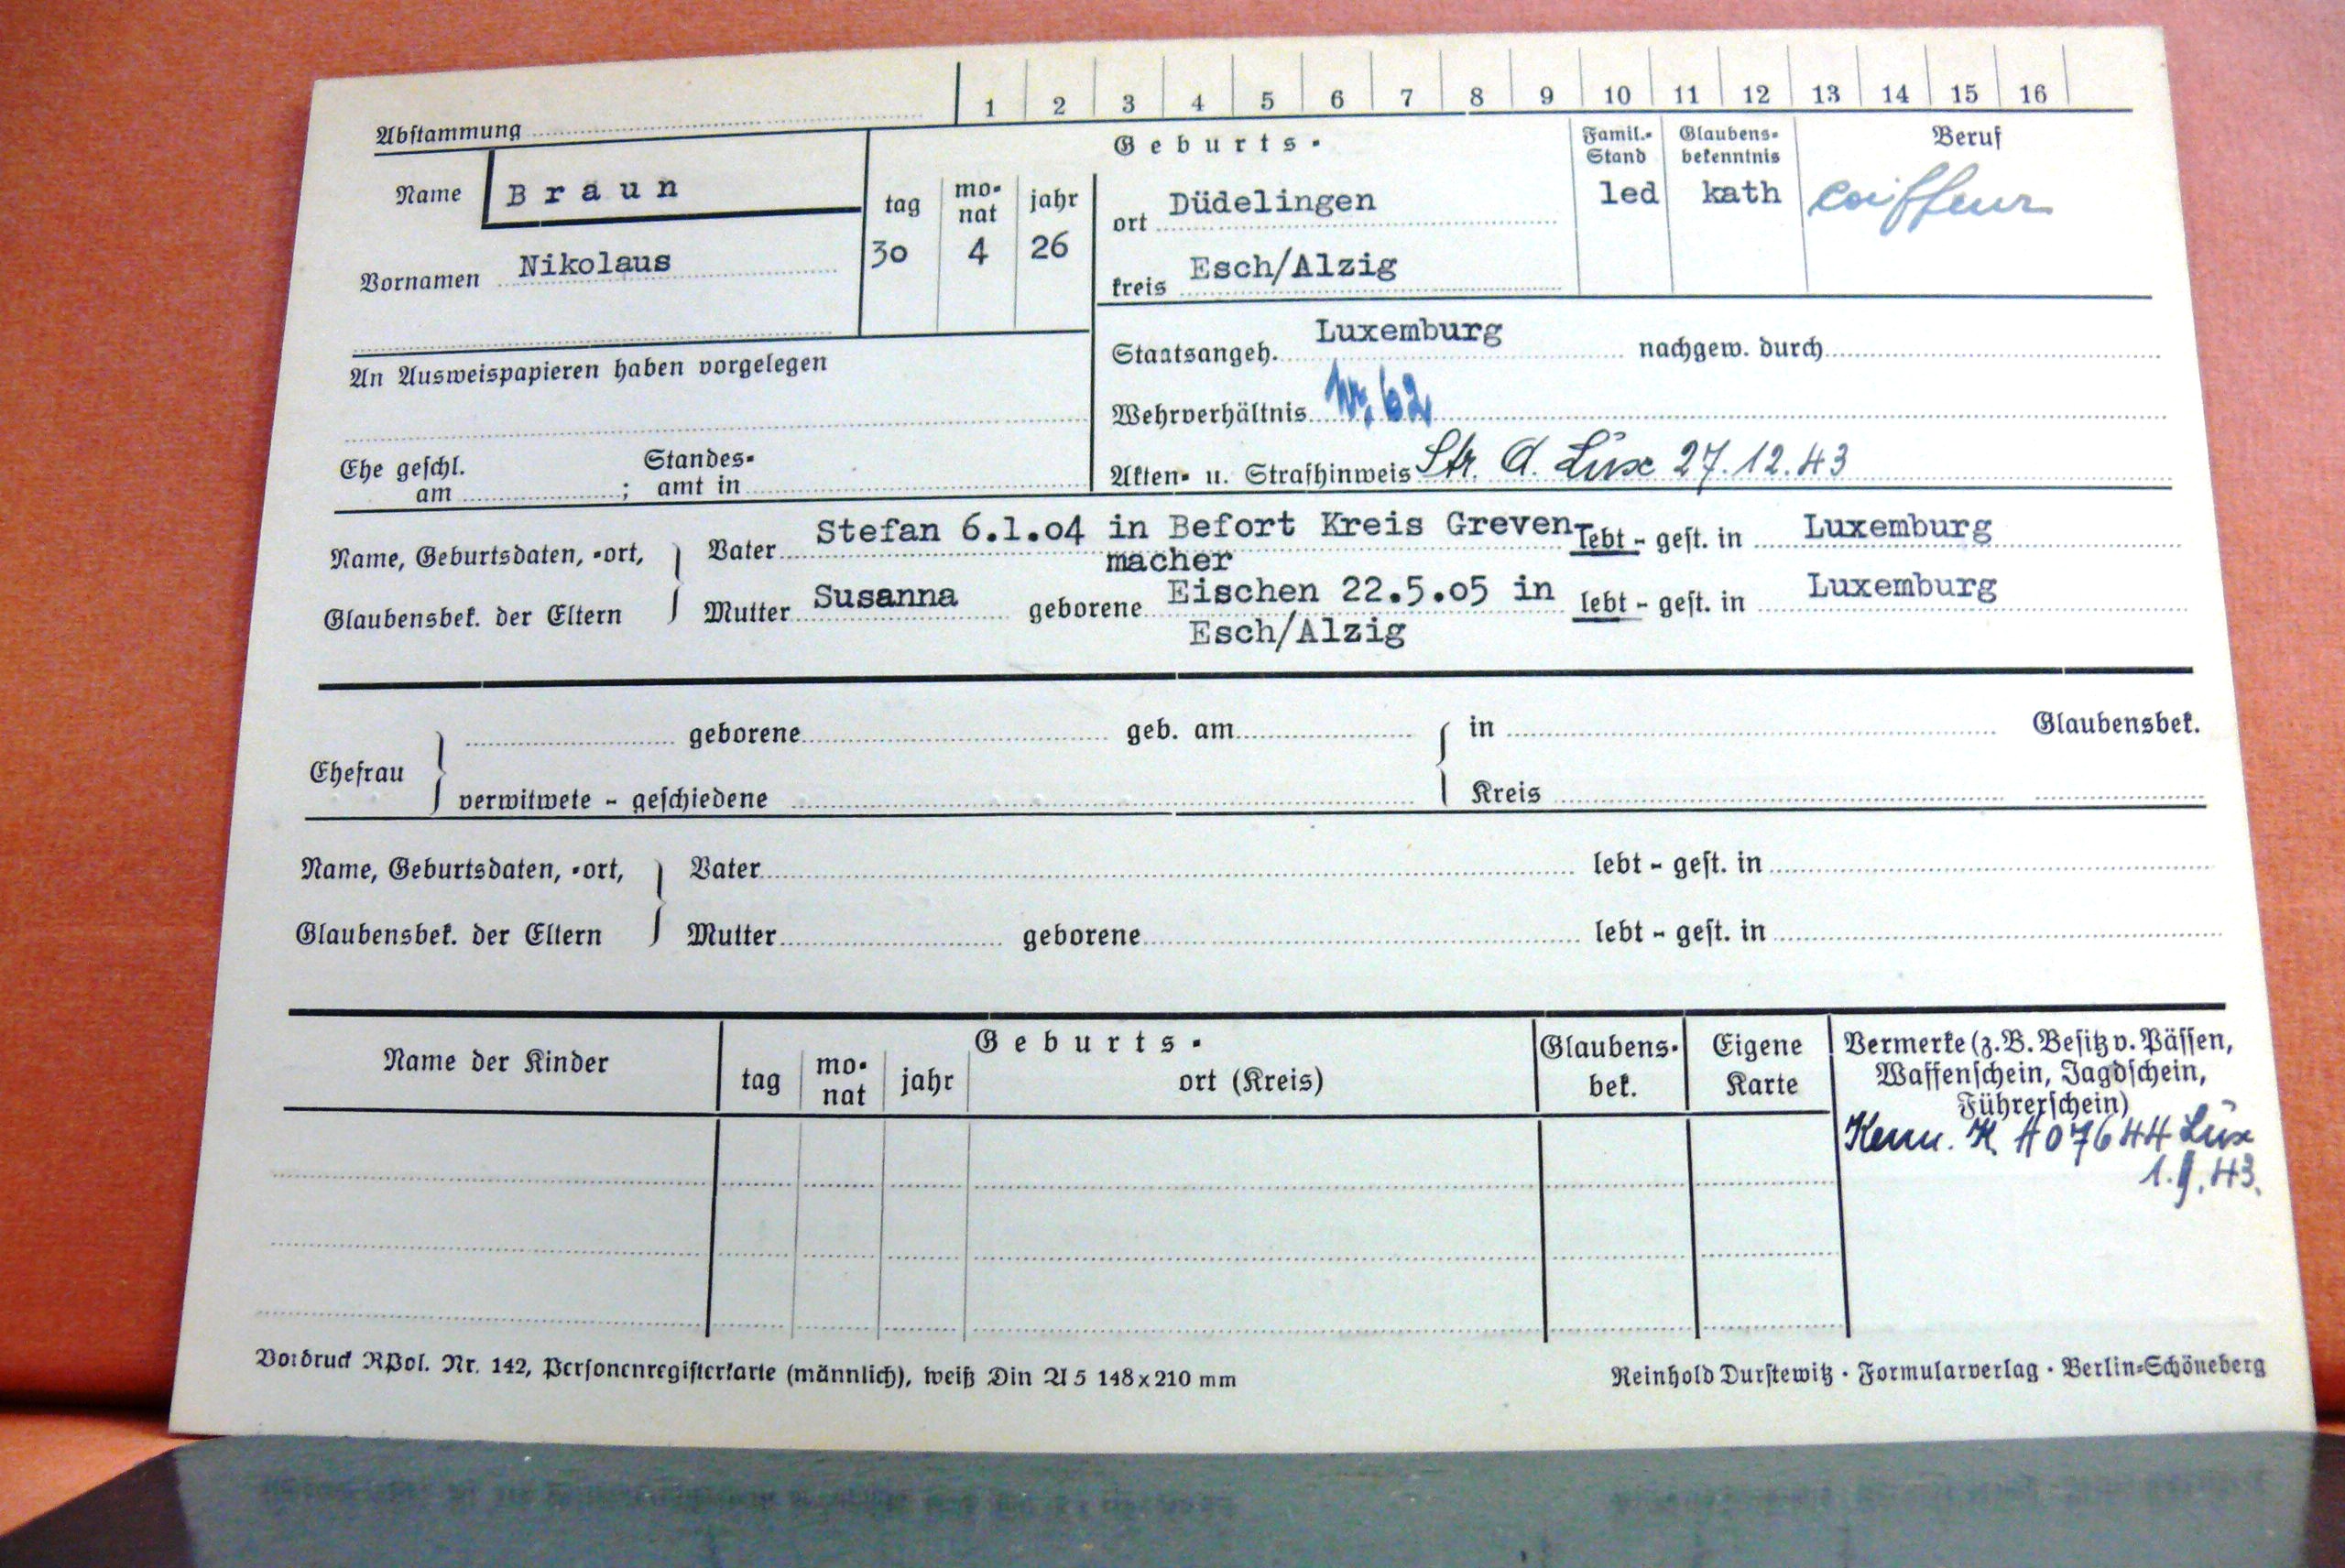 1 2 3 4 5 6 7 8 9 10 11 12 13 14 15 16
Abstammung
Name Braun
Vornamen Nikolaus
Geburts-
tag monat jahr
30 4 26
ort Düdelingen
kreis Esch/Alzig
Famil.-Stand
led
Glaubens-bekenntnis
kath
Beruf
coiffeur
An Ausweispapieren haben vorgelegen
Staatsangeh. Luxemburg nachgew. durch
Wehrverhältnis Nr. 62
Ehe geschl. am ; Standes-amt in
Akten- u. Strafhinweis Str. A. Lux 27.12.43
Name, Geburtsdaten, -ort,
Glaubensbek. der Eltern
Vater Stefan 6.1.04 in Befort Kreis Greven lebt - gest. in Luxemburg
macher
Mutter Susanna geborene Eischen 22.5.05 in lebt - gest. in Luxemburg
Esch/Alzig
Ehefrau
geborene geb. am in Glaubensbek.
verwitwete - geschiedene Kreis
Name, Geburtsdaten, -ort,
Glaubensbek. der Eltern
Vater lebt - gest. in
Mutter geborene lebt - gest. in
Name der Kinder
Geburts-
tag mo-nat jahr ort (Kreis)
Glaubens-bek.
Eigene Karte
Vermerke (z.B. Besitz v. Pässen,
Waffenschein, Jagdschein,
Führerschein)
Kenn. K A07644 Lux
43.
Vordruck RPol. Nr. 142, Personenregisterkarte (männlich), weiß Din A 5 148 x 210 mm
Reinhold Durstewitz · Formularverlag · Berlin-Schöneberg